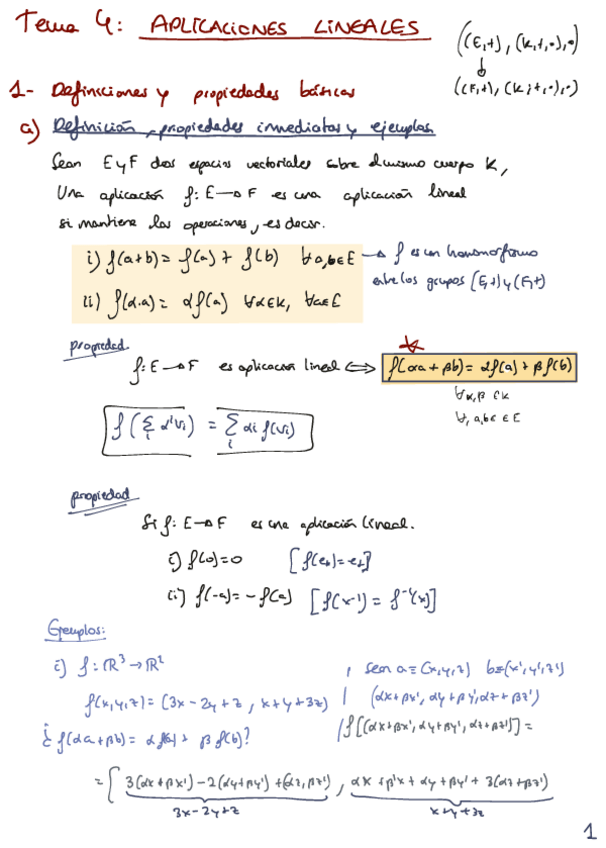 Tema 4: APLICACIONES LINEALES
((E,+), (K,+,·),·)
↓
((F,+), (K,+,·),·)
1- Definiciones y propiedades básicas
a) Definición, propiedades inmediatas y ejemplos
Sean E y F dos espacios vectoriales sobre el mismo cuerpo K,
Una aplicación f: E→F es una aplicación lineal
si mantiene las operaciones, es decir.
i) f(a+b) = f(a) + f(b) ∀a,b∈E → f es un homomorfismo
entre los grupos (E,+) y (F,+)
ii) f(α·a) = αf(a) ∀α∈K, ∀a∈E
propiedad
f: E→F es aplicación lineal ⟺ f(αa + βb) = αf(a) + βf(b)
∀α,β ∈K
∀, a,b∈ ∈ E
f(Σ αⁱvi) = Σ αi f(vi)
i i
propiedad
Si f: E→F es una aplicación lineal.
i) f(0)=0 [f(e+)=e+]
ii) f(-a)=-f(a) [f(x⁻¹) = f⁻¹(x)]
Ejemplos:
i) f: ℝ³→ℝ² | sean a=(x,y,z) b=(x',y',z')
f(x,y,z)=(3x-2y+z, x+y+3z) | (αx+βx', αy+βy', αz+βz')
¿f(αa+βb)= αf(a) + βf(b)? | f[(αx+βx', αy+βy', αz+βz')] =
= [3(αx+βx')-2(αy+βy')+(αz,βz'), αx+β'x+αy+βy'+3(αz+βz')
3x-2y+z x+y+3z
1